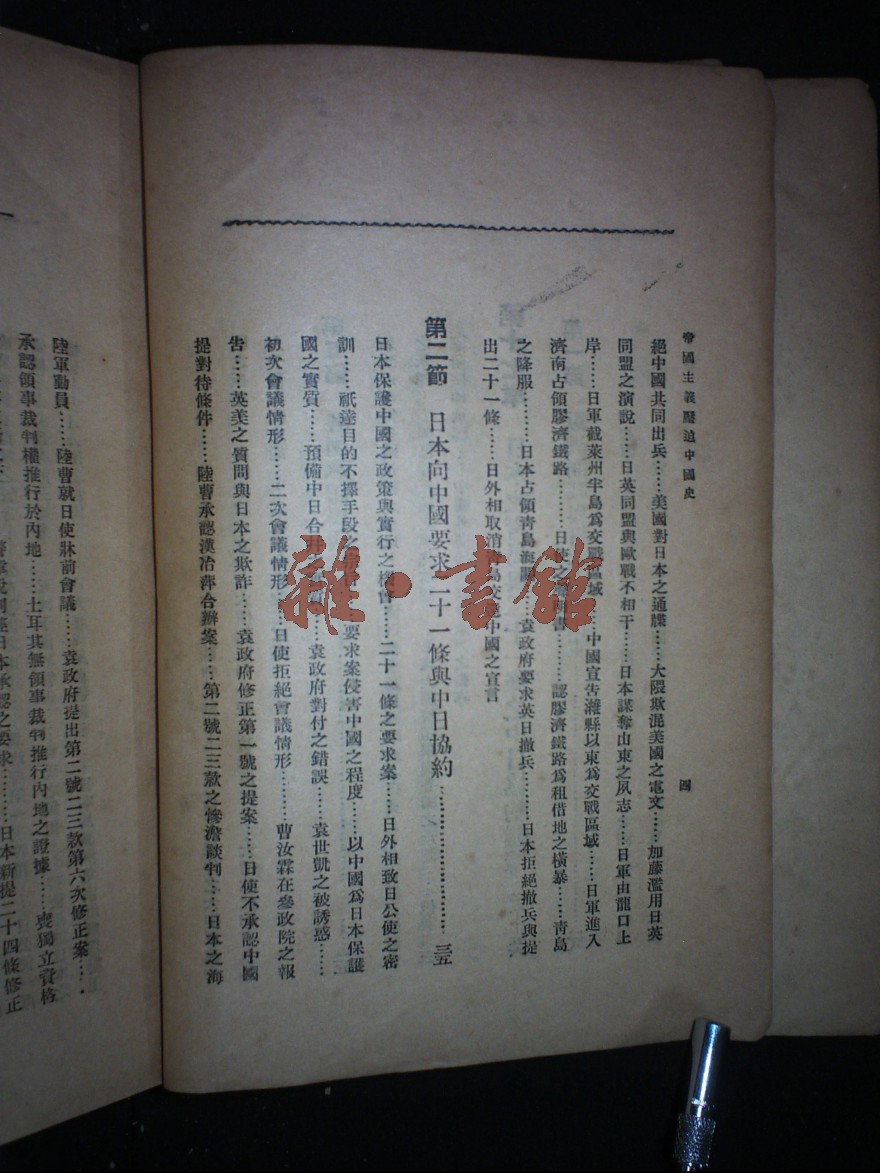 帝國主義壓迫中國史
四
絕中國共同出兵……美國對日本之通牒……大隈欺混美國之電文……加藤濫用日英
同盟之演說……日英同盟與歐戰不相干……日本謀奪山東之夙志……日軍由龍口上
岸……日軍截萊州半島爲交戰區域……中國宣告濰縣以東爲交戰區域……日軍進入
濟南占領膠濟鐵路……日使之書……認膠濟鐵路爲租借地之橫暴……靑島
之降服……日本占領靑島海關……袁政府要求英日撤兵……日本拒絕撤兵與提
出二十一條……日外相取消靑島交還中國之宣言
第二節 日本向中國要求二十一條與中日協約……三五
日本保護中國之政策與實行之機會……二十一條之要求案……日外相致日公使之密
訓……祇達目的不擇手段之……要求案侵害中國之程度……以中國爲日本保護
國之實質……預備中日合併之……袁政府對付之錯誤……袁世凱之被誘惑……
初次會議情形……二次會議情形……日使拒絕會議情形……曹汝霖在參政院之報
告……英美之質問與日本之欺詐……袁政府修正第一號之提案……日使不承認中國
提對待條件……陸曹承認漢冶萍合辦案……第二號二三款之慘澹談判……日本之海
陸軍動員……陸曹就日使牀前會議……袁政府提出第二號二三款第六次修正案……
承認領事裁判權推行於內地……土耳其無領事裁判推行內地之證據……喪獨立資格
日本承認之要求……日本新提二十四條修正
雜·書館